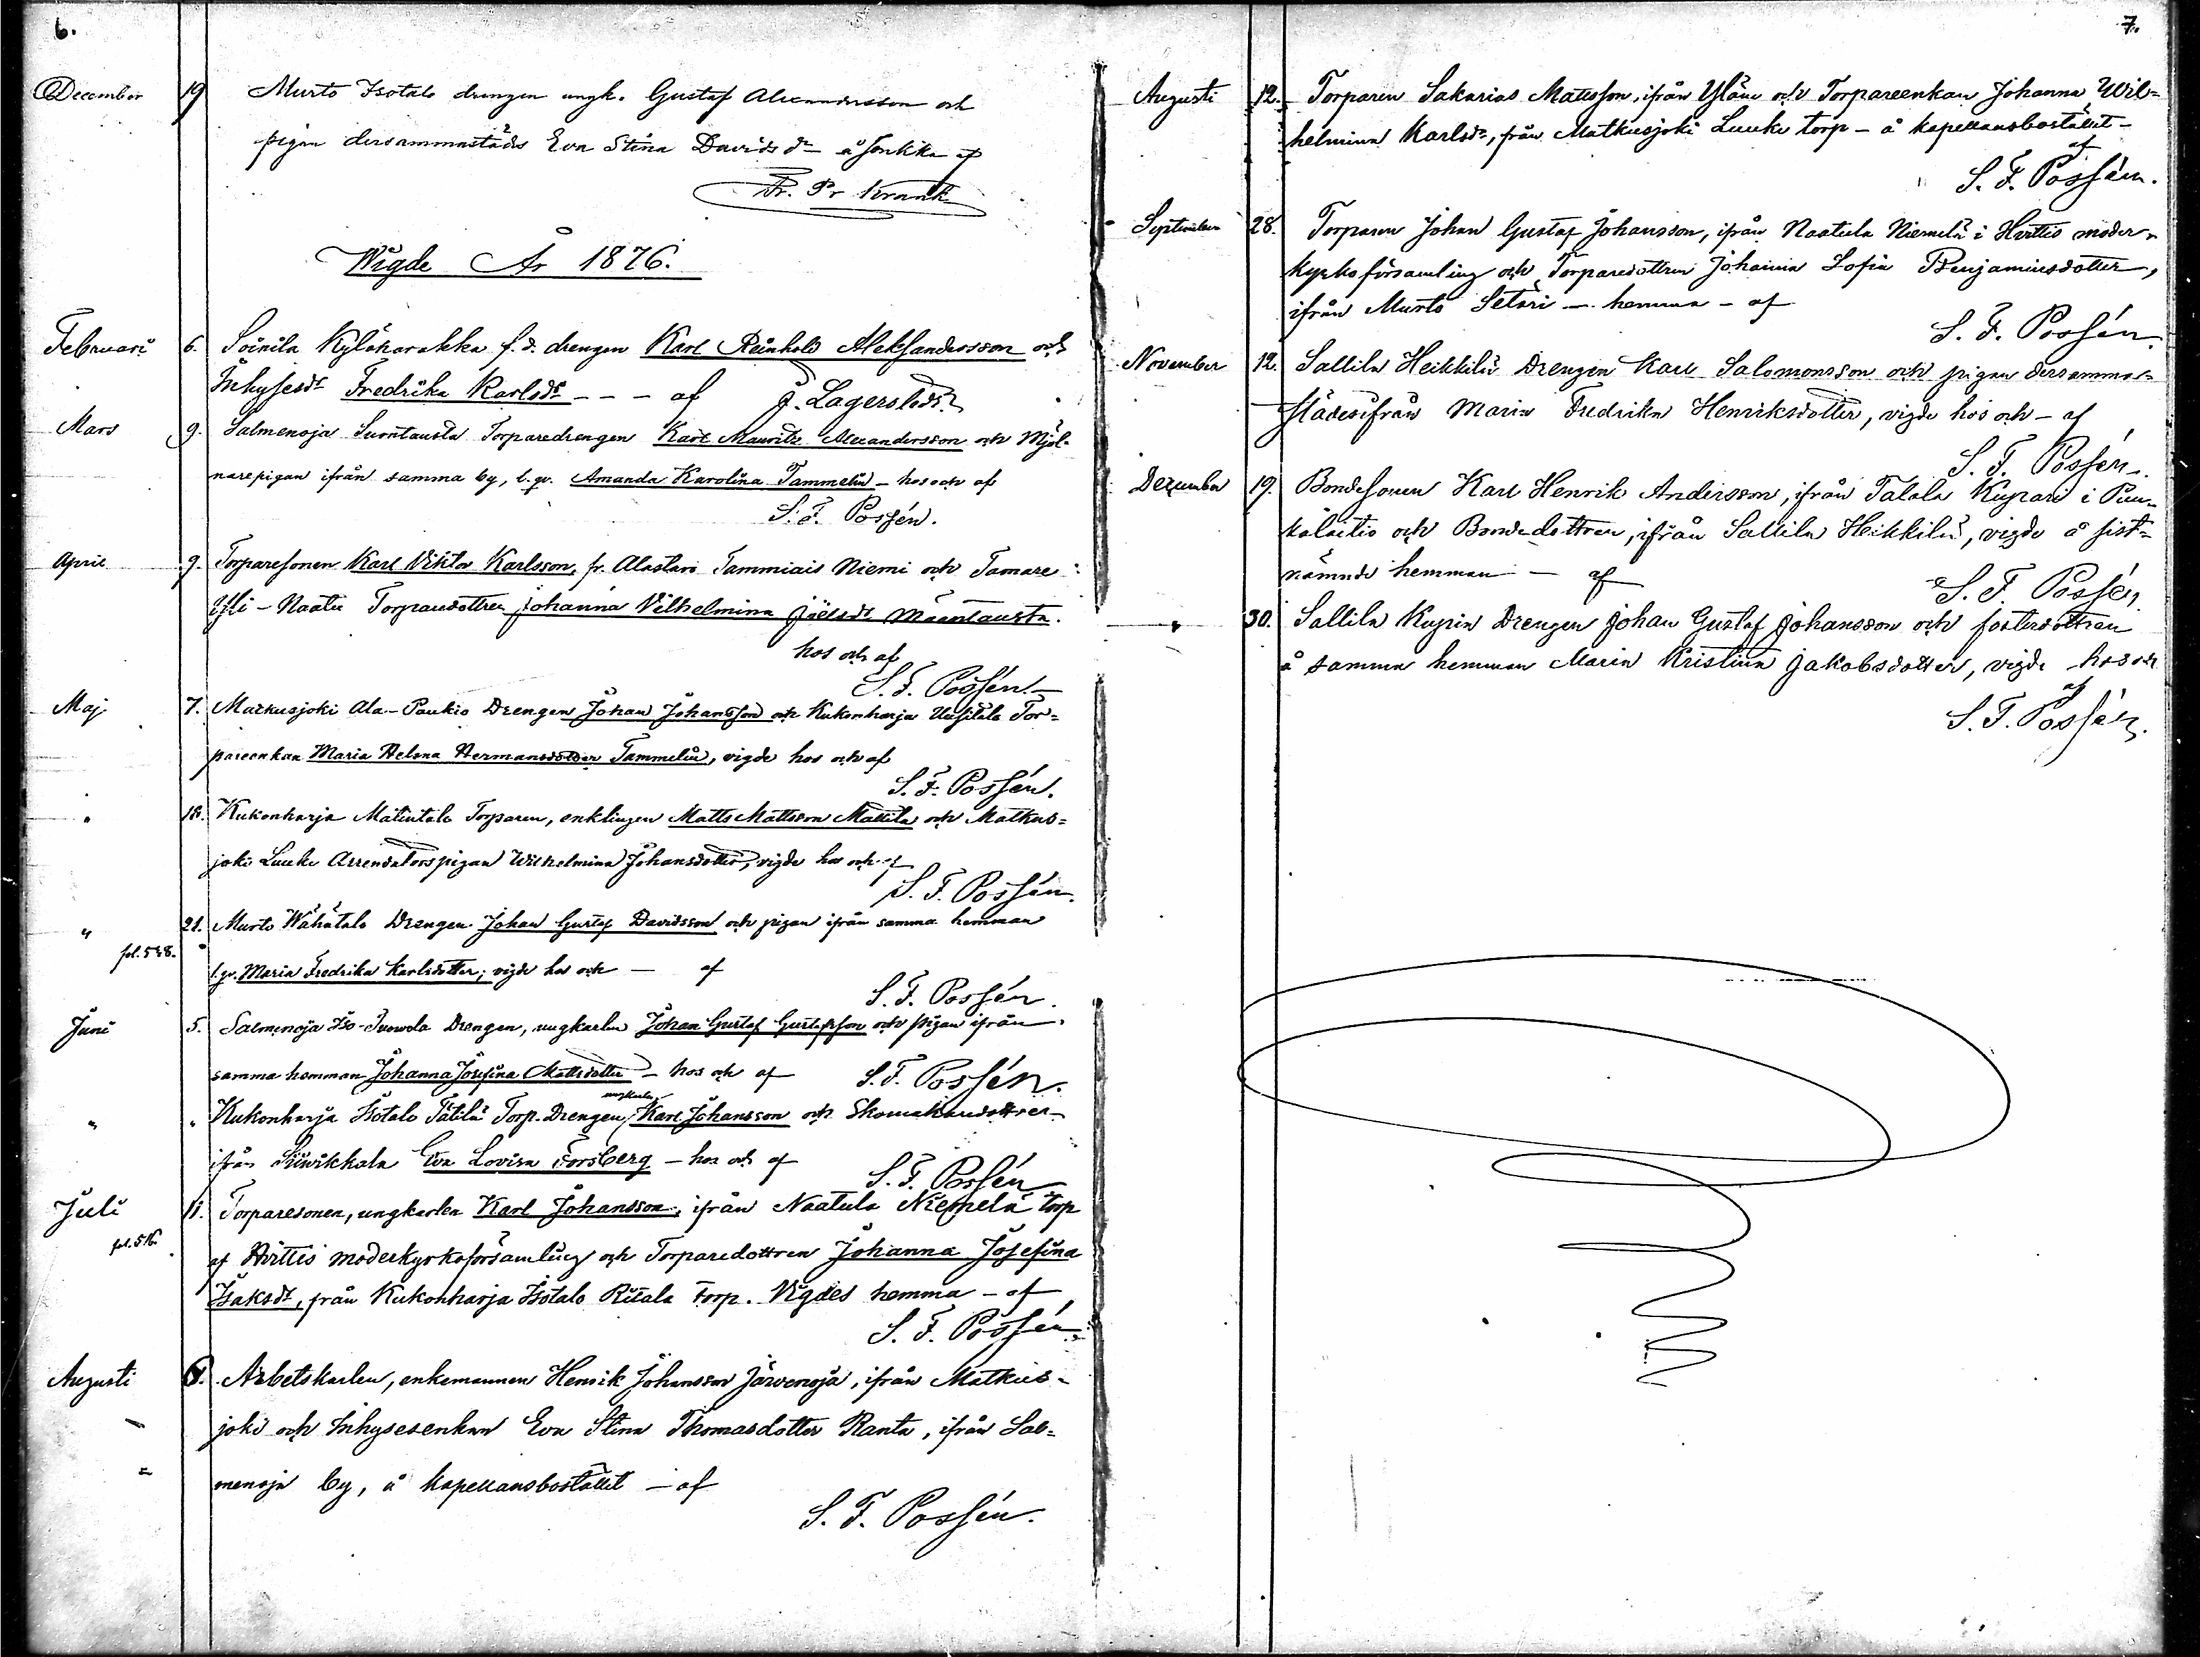 6.
December 19 Murto Isotalo drengen ungk. Gustaf Alexandersson och
pigan dersammastädes Eva Stina Davids dr å Sonkka af
Fr. Pr Krank
Wigde År 1876.
Februari 6. Soinila Kyläkarakka f.d. drengen Karl Reinhold Aleksandersson och
Inhysesdr Fredrika Karlsdr - - - af J. Lagerstedt
Mars 9. Salmenoja Suontausta Torparedrengen Karl Mauritz Alexandersson och Mjöl-
narepigan ifrån samma by, l. qv. Amanda Karolina Tammelin - hos och af
S. F. Possén.
April 9. Torparesonen Karl Viktor Karlsson, fr. Alastaro Tammiais Niemi och Tamare
Yli-Naatu Torparedottren Johanna Vilhelmina Joelsdr Mäentausta.
hos och af
S. F. Possén. -
Maj 7. Matkusjoki Ala-Paukio Drengen Johan Johansson och Kukonharja Uusitalo Tor=
pareenkan Maria Helena Hermansdotter Tammelin, vigde hos och af
S. F. Possén.
" 18. Kukonharja Matintalo Torparen, enklingen Matts Mattsson Mattila och Matkus=
joki Luuke Arrendatorspigan Wilhelmina Johansdotter, vigde hos och af
S. F. Possén.
" 21. Murto Wähätalo Drengen Johan Gustaf Davidsson och pigan ifrån samma hemman
fol. 588.
l. qv. Maria Fredrika Karlsdotter; vigde hos och - af
S. F. Possén.
Juni 5. Salmenoja Iso-Junnola Drengen, ungkarlen Johan Gustaf Gustafsson och pigan ifrån
samma hemman Johanna Josefina Mattsdotter - hos och af S. F. Possén.
ungkarlen
" " Kukonharja Isotalo Tätilä Torp. Drengen, Karl Johansson och Skomakaredottren
ifrån Kiwikkala Eva Lovisa Forsberg - hos och af S. F. Possén
Juli 11. Torparesonen, ungkarlen Karl Johansson, ifrån Naatula Niemelä torp
fol. 516.
af Hvittis moderkyrkoförsamling och Torparedottren Johanna Josefina
Isaksdr, från Kukonharja Isotalo Ritala torp. Vigdes hemma - af
S. F. Possén.
Augusti 8. Arbetskarlen, enkemannen Henrik Johansson Järvenoja, ifrån Matkus-
joki och Inhysesenkan Eva Stina Thomasdotter Ranta, ifrån Sal=
menoja by, å kapellansbostället - af
S. F. Possén.
7.
Augusti 12. Torparen Sakarias Mattsson, ifrån Yläne och Torpareenkan Johanna Wil=
helmina Karlsdr, från Matkusjoki Luuke torp - å kapellansbostället -
af
S. F. Possén.
September 28. Torparen Johan Gustaf Johansson, ifrån Naatula Niemelä i Hvittis moder-
kyrkoförsamling och Torparedottren Johanna Sofia Benjaminsdotter,
ifrån Murto Setäri - hemma - af
S. F. Possén.
November 12. Sallila Heikkilä Drengen Karl Salomonsson och pigan dersamma-
städesifrån Maria Fredrika Henriksdotter, vigde hos och - af
S. F. Possén.
Dezember 19. Bondesonen Karl Henrik Andersson, ifrån Talala Kuparis i Pun-
kalaitio och Bondedottren, ifrån Sallila Heikkilä, vigde å sist-
nämnde hemman - af
S. F. Possén
" 30. Sallila Kupia Drengen Johan Gustaf Johansson och fosterdottren
å samma hemman Maria Kristina Jakobsdotter, vigde hos och
af
S. F. Possén.